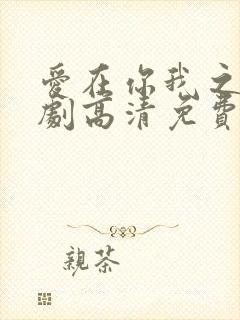 愛在你我之
劇高清免費
親茶